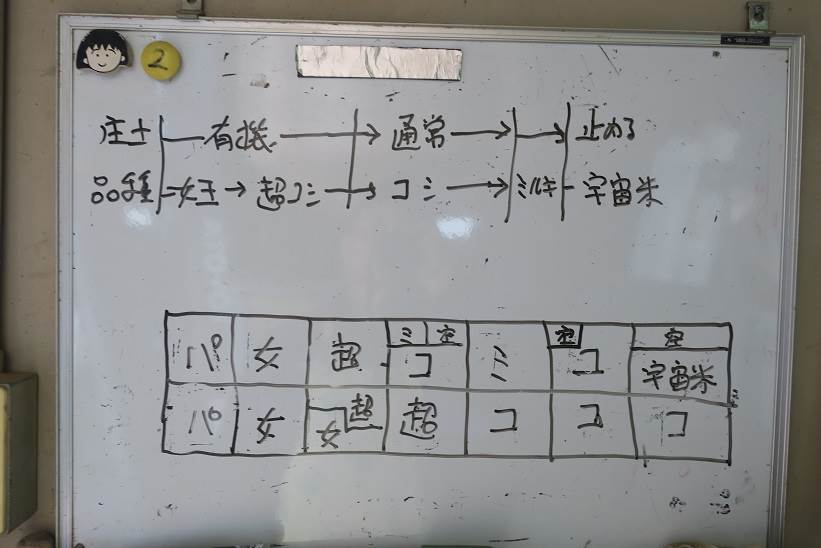 2
庄士 有機 → 通常 → → 止める
品種 女王 → 超コシ → コシ → ミルキー 宇宙米
パ 女 超 ミ 空 コ ミ 空 コ 空 宇宙米
パ 女 女 超 超 コ コ コ